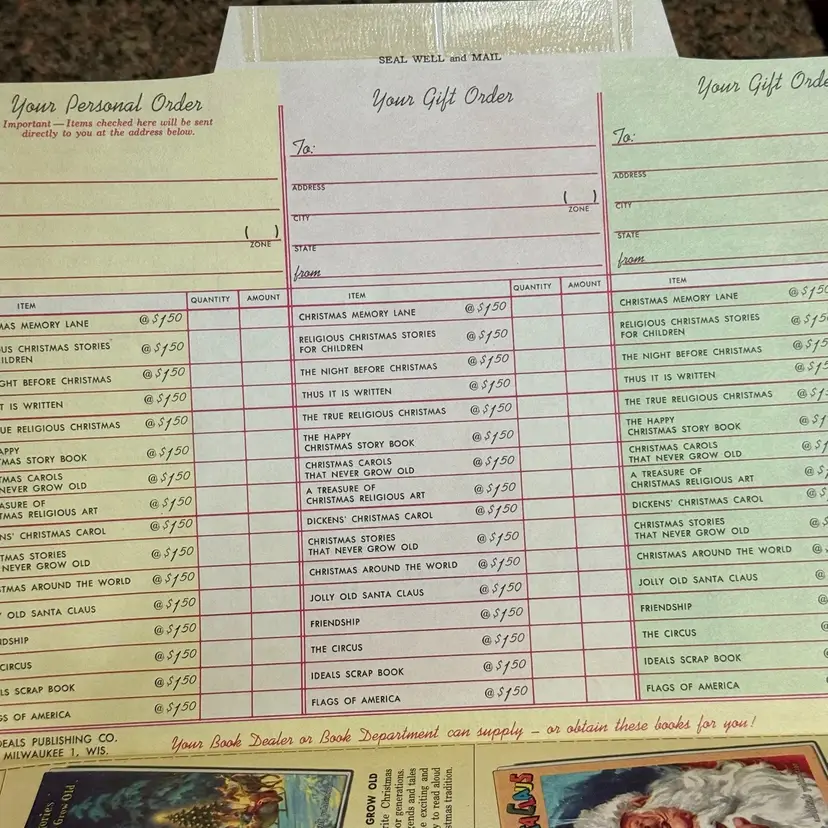 SEAL WELL and MAIL
Your Personal Order
Important — Items checked here will be sent
directly to you at the address below.
( )
ZONE
ITEM QUANTITY AMOUNT
MAS MEMORY LANE @ $1.50
US CHRISTMAS STORIES
ILDREN @ $1.50
GHT BEFORE CHRISTMAS @ $1.50
T IS WRITTEN @ $1.50
UE RELIGIOUS CHRISTMAS @ $1.50
APPY
MAS STORY BOOK @ $1.50
TMAS CAROLS
NEVER GROW OLD @ $1.50
ASURE OF
TMAS RELIGIOUS ART @ $1.50
NS' CHRISTMAS CAROL @ $1.50
TMAS STORIES
NEVER GROW OLD @ $1.50
STMAS AROUND THE WORLD @ $1.50
Y OLD SANTA CLAUS @ $1.50
NDSHIP @ $1.50
CIRCUS @ $1.50
LS SCRAP BOOK @ $1.50
GS OF AMERICA @ $1.50
Your Gift Order
To:
ADDRESS
( )
CITY ZONE
STATE
from
ITEM QUANTITY AMOUNT
CHRISTMAS MEMORY LANE @ $1.50
RELIGIOUS CHRISTMAS STORIES
FOR CHILDREN @ $1.50
THE NIGHT BEFORE CHRISTMAS @ $1.50
THUS IT IS WRITTEN @ $1.50
THE TRUE RELIGIOUS CHRISTMAS @ $1.50
THE HAPPY
CHRISTMAS STORY BOOK @ $1.50
CHRISTMAS CAROLS
THAT NEVER GROW OLD @ $1.50
A TREASURE OF
CHRISTMAS RELIGIOUS ART @ $1.50
DICKENS' CHRISTMAS CAROL @ $1.50
CHRISTMAS STORIES
THAT NEVER GROW OLD @ $1.50
CHRISTMAS AROUND THE WORLD @ $1.50
JOLLY OLD SANTA CLAUS @ $1.50
FRIENDSHIP @ $1.50
THE CIRCUS @ $1.50
IDEALS SCRAP BOOK @ $1.50
FLAGS OF AMERICA @ $1.50
Your Gift Orde
To:
ADDRESS
CITY
STATE
from
ITEM
CHRISTMAS MEMORY LANE @ $1.50
RELIGIOUS CHRISTMAS STORIES
FOR CHILDREN @ $1.50
THE NIGHT BEFORE CHRISTMAS @ $1.5
THUS IT IS WRITTEN @ $1.5
THE TRUE RELIGIOUS CHRISTMAS @ $1.
THE HAPPY
CHRISTMAS STORY BOOK @ $1.
CHRISTMAS CAROLS
THAT NEVER GROW OLD @ $1
A TREASURE OF
CHRISTMAS RELIGIOUS ART @ $
DICKENS' CHRISTMAS CAROL @ $
CHRISTMAS STORIES
THAT NEVER GROW OLD @ $
CHRISTMAS AROUND THE WORLD @
JOLLY OLD SANTA CLAUS @
FRIENDSHIP @
THE CIRCUS @
IDEALS SCRAP BOOK @
FLAGS OF AMERICA @
DEALS PUBLISHING CO.
MILWAUKEE 1, WIS.
Your Book Dealer or Book Department can supply – or obtain these books for you!
ories
Grow Old
GROW OLD
rite Christmas
or generations.
gends and tales
e exciting and
y to read aloud
stmas tradition.